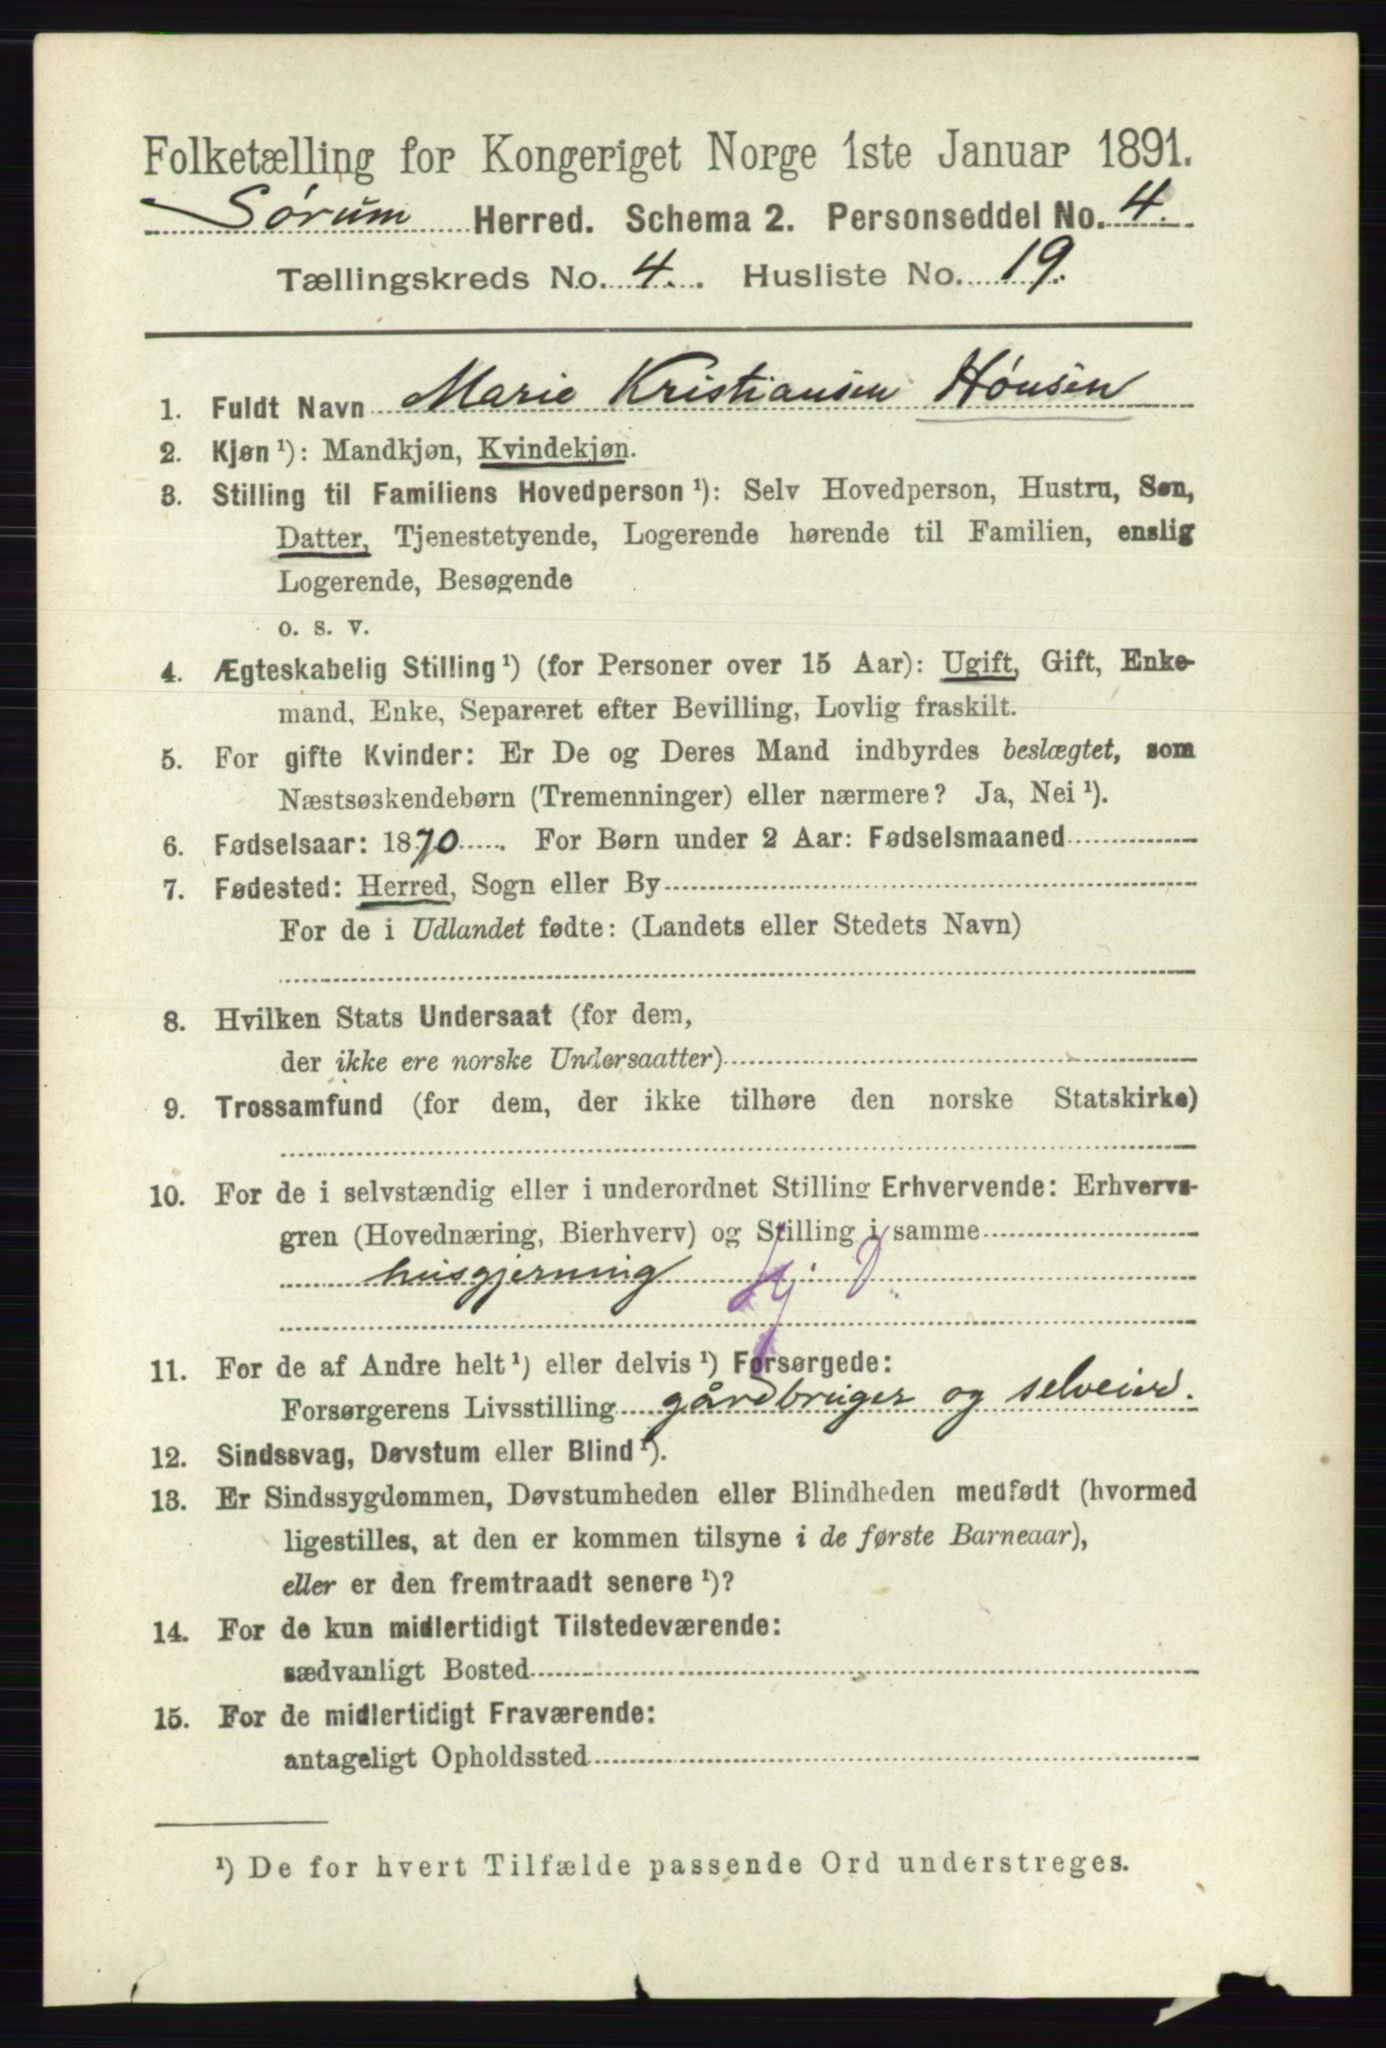 Folketælling for Kongeriget Norge 1ste Januar 1891.
Sørum Herred. Schema 2. Personseddel No. 4.
Tællingskreds No. 4. Husliste No. 19.
1. Fuldt Navn Marie Kristiansen Hønsen
2. Kjøn ¹): Mandkjøn, Kvindekjøn.
3. Stilling til Familiens Hovedperson ¹): Selv Hovedperson, Hustru, Søn,
Datter, Tjenestetyende, Logerende hørende til Familien, enslig
Logerende, Besøgende
o. s. v.
4. Ægteskabelig Stilling ¹) (for Personer over 15 Aar): Ugift, Gift, Enke-
mand, Enke, Separeret efter Bevilling, Lovlig fraskilt.
5. For gifte Kvinder: Er De og Deres Mand indbyrdes beslægtet, som
Næstsøskendebørn (Tremenninger) eller nærmere? Ja, Nei ¹).
6. Fødselsaar: 1870. For Børn under 2 Aar: Fødselsmaaned
7. Fødested: Herred, Sogn eller By
For de i Udlandet fødte: (Landets eller Stedets Navn)
8. Hvilken Stats Undersaat (for dem,
der ikke ere norske Undersaatter)
9. Trossamfund (for dem, der ikke tilhøre den norske Statskirke)
10. For de i selvstændig eller i underordnet Stilling Erhvervende: Erhvervs-
gren (Hovednæring, Bierhverv) og Stilling i samme
husgjerning
11. For de af Andre helt ¹) eller delvis ¹) Forsørgede:
Forsørgerens Livsstilling gårdbruger og selveier.
12. Sindssvag, Døvstum eller Blind ¹).
13. Er Sindssygdommen, Døvstumheden eller Blindheden medfødt (hvormed
ligestilles, at den er kommen tilsyne i de første Barneaar),
eller er den fremtraadt senere ¹)?
14. For de kun midlertidigt Tilstedeværende:
sædvanligt Bosted
15. For de midlertidigt Fraværende:
antageligt Opholdssted
¹) De for hvert Tilfælde passende Ord understreges.